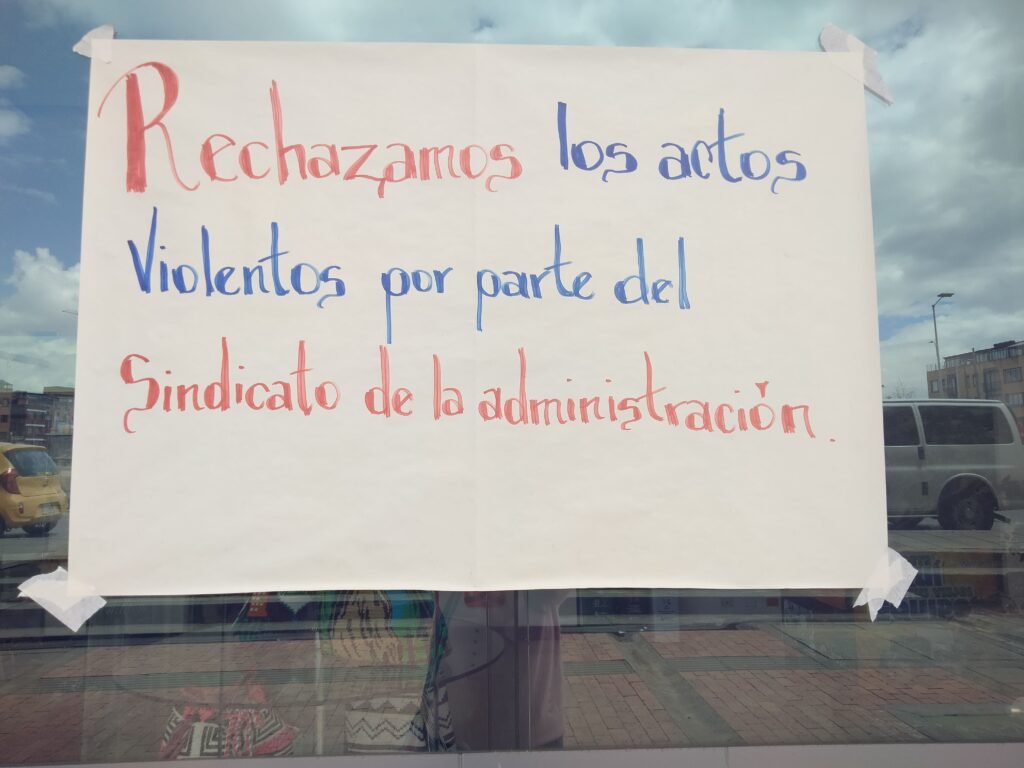 Rechazamos los actos
Violentos por parte del
Sindicato de la administración.